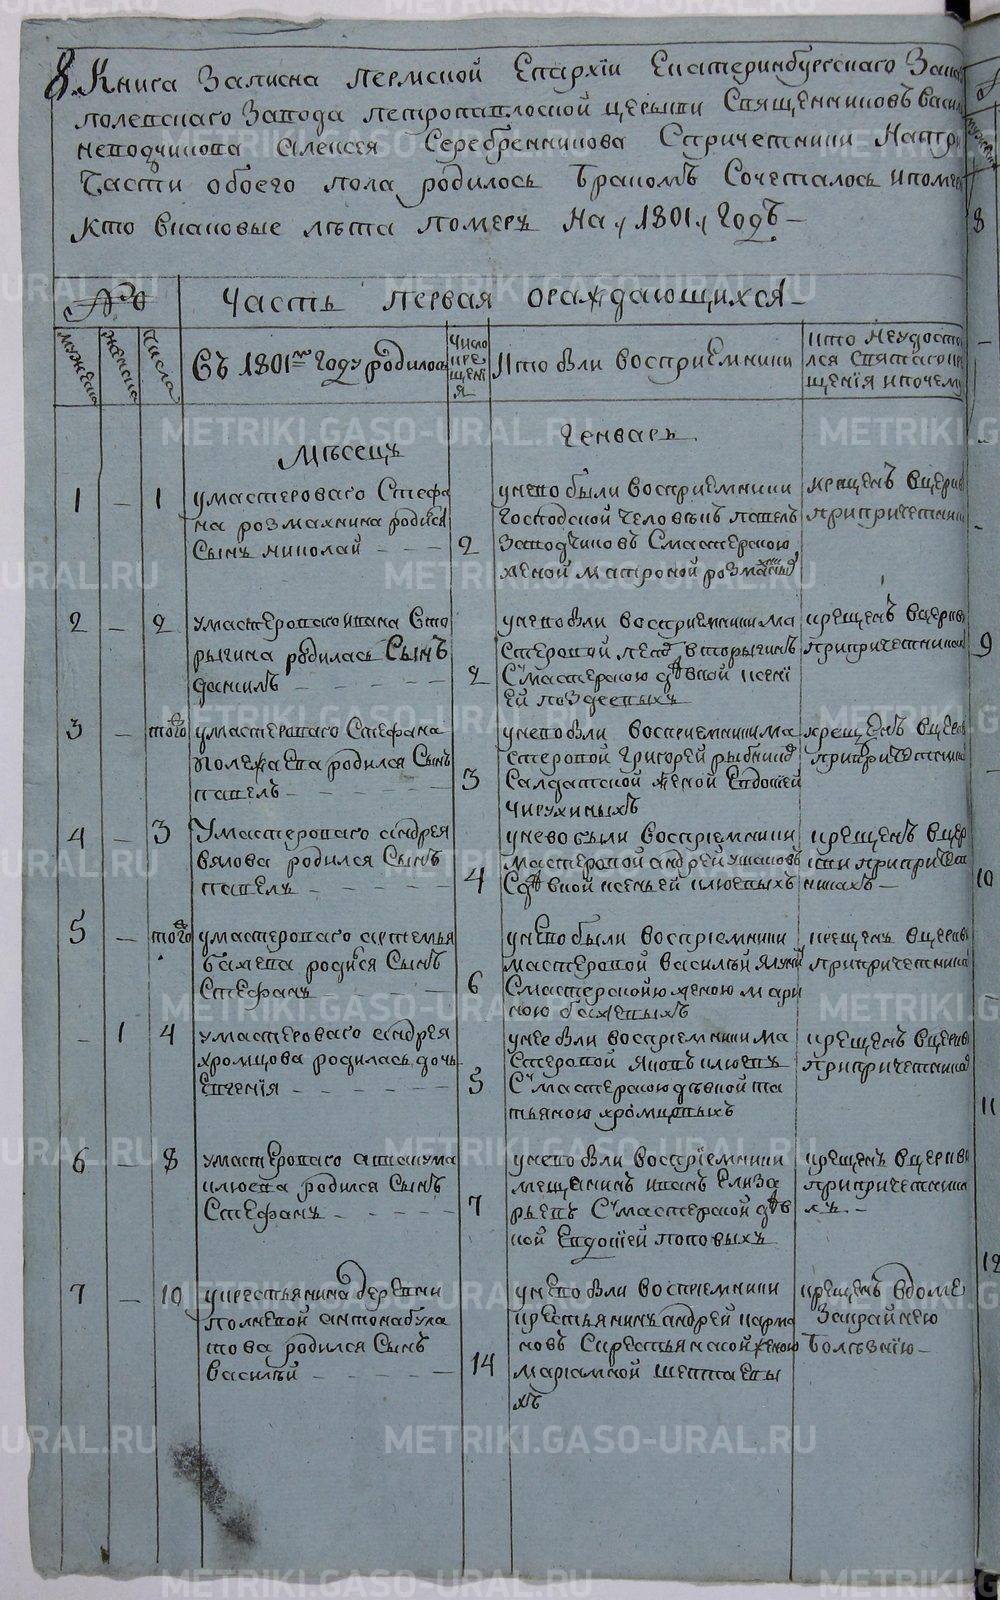 8. Книга Записна пермской Епархіи Екатеринбургскаго
полевскаго Завода петропавлоской церькви Священниковъ
неводчикова Алексея Серебренникова Спричетники На три
Части обоего пола родилось бракомъ Сочеталось
кто вкаковые лѣта померъ На 1801 Годъ
№
Часть первая ораждающихся
мужеска
женска
числа
Съ 1801 году родилось
Число креще щенія
кто были восприемники
кто неудосто
лся святаго кре
щенія ипочему
Мѣсецъ Генварь
1 - 1
умастероваго Стефа
на розмахнина родился
Сынъ николай
2
унево были восприемники
господской человѣкъ павелъ
заводчиковъ Смастерскою
женой матроной
крещенъ вцеркви
припричетникахъ
2 - 2
умастероваго ивана Вто
рыгина родилась Сынъ
данилъ
2
унево были восприемники ма
стеровой вторыгинъ
Смастерскою дѣвкой ксені
ей поздеевыхъ
крещенъ вцеркви
припричетникахъ
3 - того
умастероваго Стефана
полежаева родился Сынъ
павелъ
3
унево были восприемники ма
стеровой григорей
Салдатской женой Евдокией
чирухиныхъ
крещенъ вцеркви
припричетникахъ
4 - 3
Умастероваго андрея
вялова родился Сынъ
павелъ
4
унево были восприемники
мастеровой андрей ушаковъ
Сдѣвкой ксеньей клюевыхъ
крещенъ вцер
кви припричет
никахъ
5 - того
умастероваго артемья
бажева родился Сынъ
Стефанъ
6
унево были восприемники
мастеровой василѣй
Смастерскойю женою мари
ною бажевыхъ
крещенъ вцеркви
припричетникахъ
- 1 4
умастероваго андрея
хромцова родилась дочь
Евгенія
5
унее были восприемники ма
стеровой яковъ клюевъ
Смастерскою дѣвкой та
тьяною хромцовыхъ
крещенъ вцеркви
припричетникахъ
6 - 8
умастероваго авакума
клюева родился Сынъ
Стефанъ
7
унево были восприемники
мещенинъ иванъ Елиза
рьевъ Смастерской дѣв
кой Евдокией поповыхъ
крещенъ вцеркви
припричетника
хъ
7 - 10
укрестьянина деревни
полдневой антона була
това родился Сынъ
василѣй
14
унево были восприемники
крестьянинъ андрей карма
новъ Скрестьянской женою
мариамной шептаевы
хъ
крещенъ вдоме
Закрайнею
болѣзнію
8
9
10
11
12
METRIKI.GASO-URAL.RU